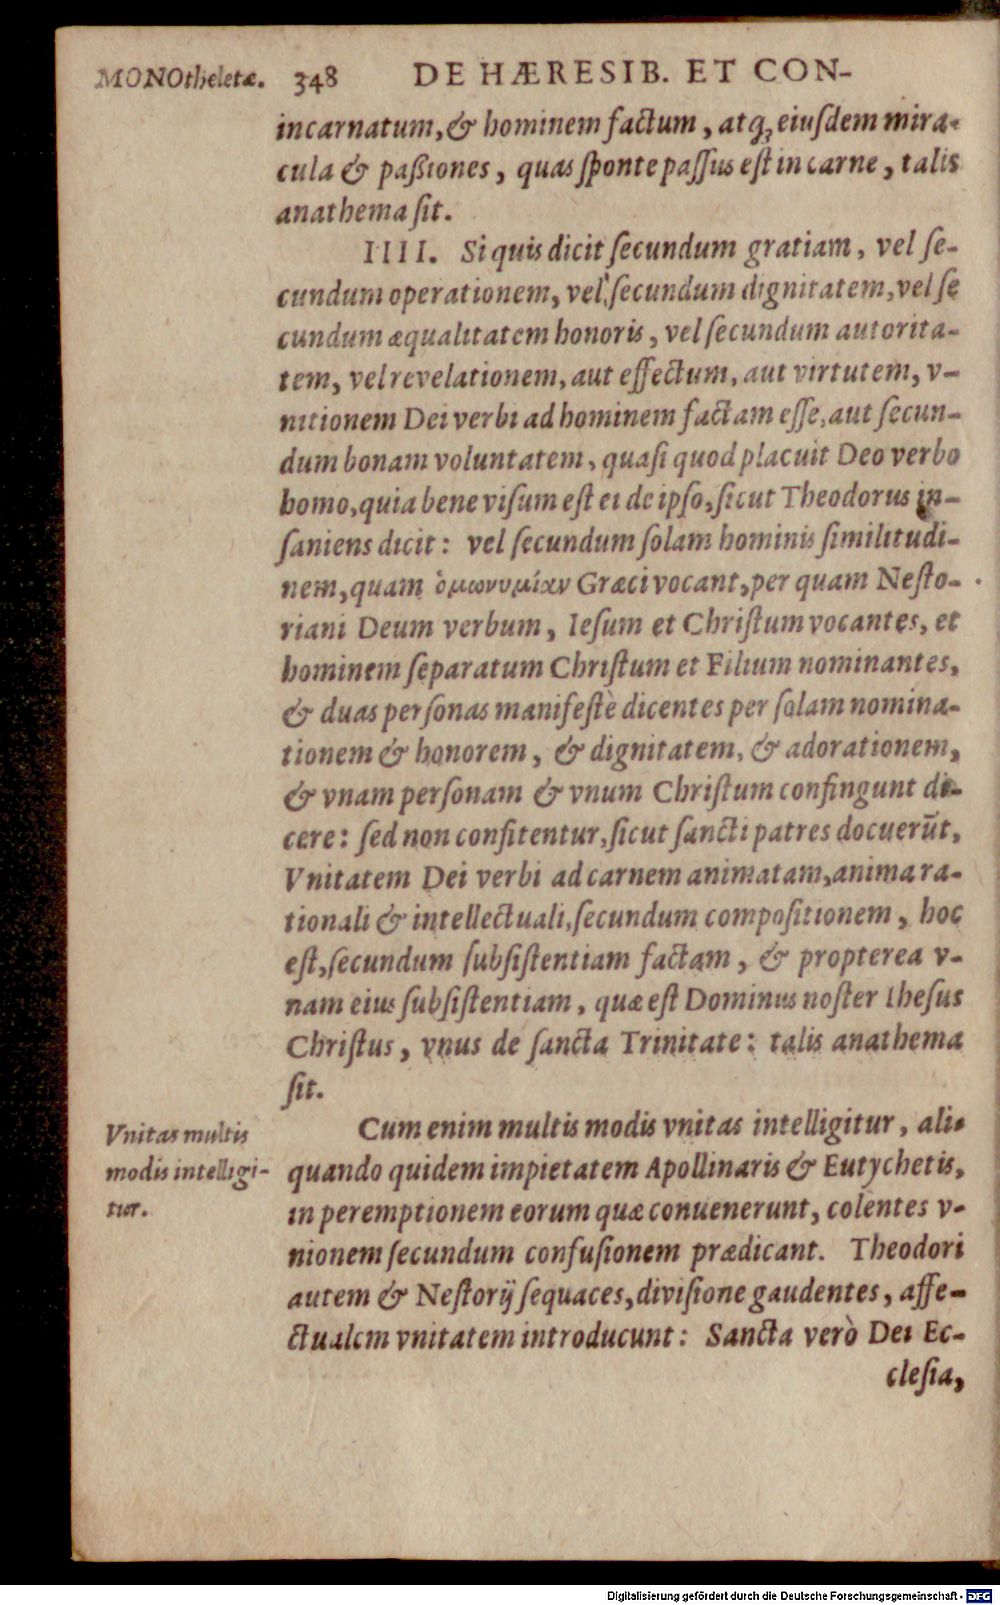 MONOtheletæ. 348 DE HÆRESIB. ET CON-
incarnatum, & hominem factum, atq; eiuſdem mira-
cula & paßiones, quas ſponte paſſus eſt in carne, talis
anathema ſit.
IIII. Si quis dicit ſecundum gratiam, vel ſe-
cundum operationem, vel ſecundum dignitatem, vel ſe
cundum æqualitatem honoris, vel ſecundum autorita-
tem, vel revelationem, aut effectum, aut virtutem, v-
nitionem Dei verbi ad hominem factam eſſe, aut ſecun-
dum bonam voluntatem, quaſi quod placuit Deo verbo
homo, quia bene viſum eſt ei de ipſo, ſicut Theodorus in-
ſaniens dicit: vel ſecundum ſolam hominis ſimilitudi-
nem, quam ὁμωνυμίαν Græci vocant, per quam Neſto-
riani Deum verbum, Ieſum et Chriſtum vocantes, et
hominem ſeparatum Chriſtum et Filium nominantes,
& duas perſonas manifeſtè dicentes per ſolam nomina-
tionem & honorem, & dignitatem, & adorationem,
& vnam perſonam & vnum Chriſtum confingunt di-
cere: ſed non confitentur, ſicut ſancti patres docuerūt,
Vnitatem Dei verbi ad carnem animatam, anima ra-
tionali & intellectuali, ſecundum compoſitionem, hoc
eſt, ſecundum ſubſiſtentiam factam, & propterea v-
nam eius ſubſiſtentiam, quæ eſt Dominus noſter Iheſus
Chriſtus, vnus de ſancta Trinitate: talis anathema
ſit.
Vnitas multis
modis intelligi-
tur.
Cum enim multis modis vnitas intelligitur, ali-
quando quidem impietatem Apollinaris & Eutychetis,
in peremptionem eorum quæ conuenerunt, colentes v-
nionem ſecundum confuſionem prædicant. Theodori
autem & Neſtorij ſequaces, diviſione gaudentes, affe-
ctualem vnitatem introducunt: Sancta verò Dei Ec-
cleſia,
Digitalisierung gefördert durch die Deutsche Forschungsgemeinschaft - DFG